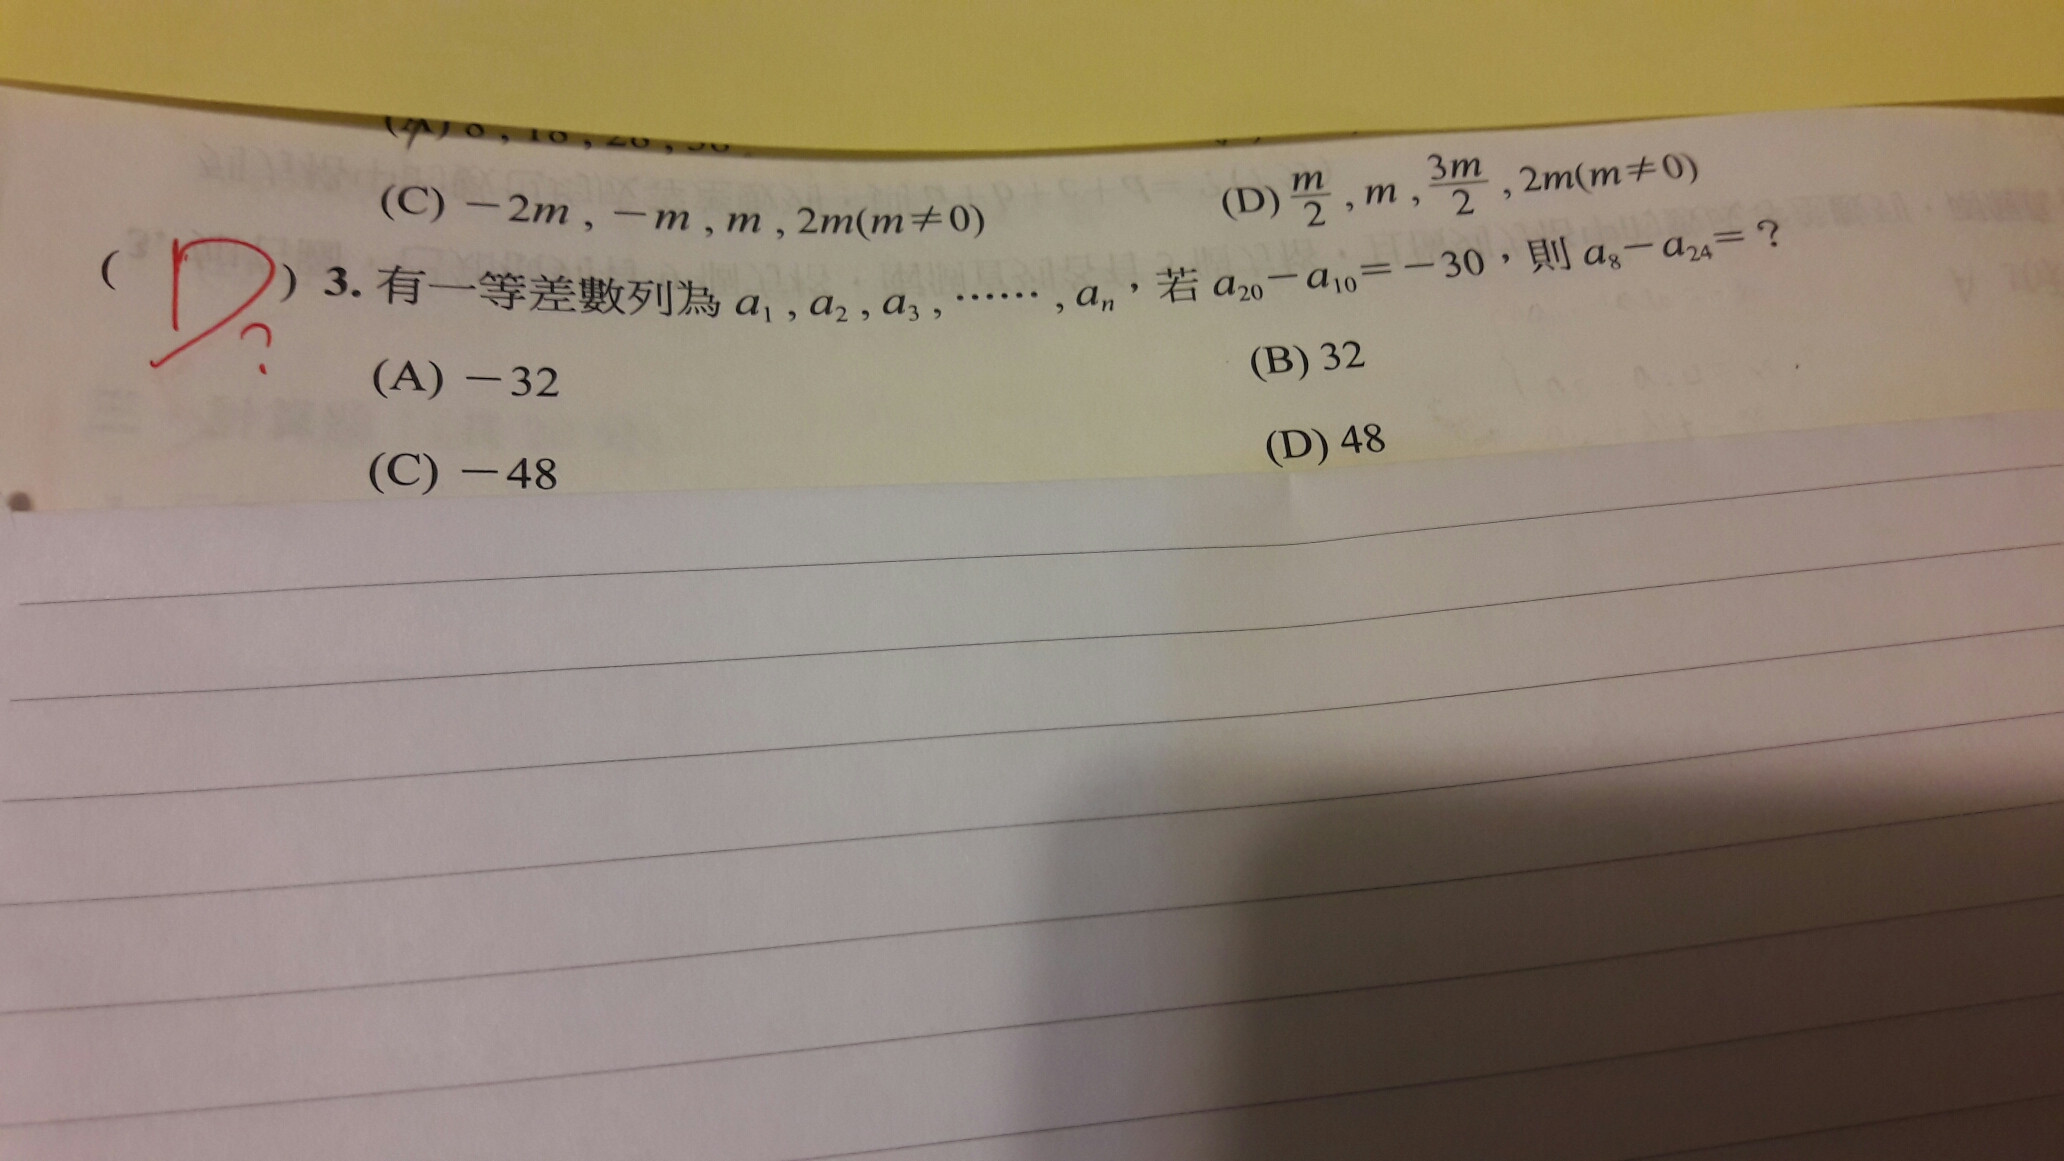 (C) －2m , －m , m , 2m(m≠0)
(D) m/2 , m , 3m/2 , 2m(m≠0)
( D ) 3. 有一等差數列為 a₁ , a₂ , a₃ , ⋯⋯ , aₙ，若 a₂₀－a₁₀＝－30，則 a₈－a₂₄＝？
?
(A) －32
(B) 32
(C) －48
(D) 48